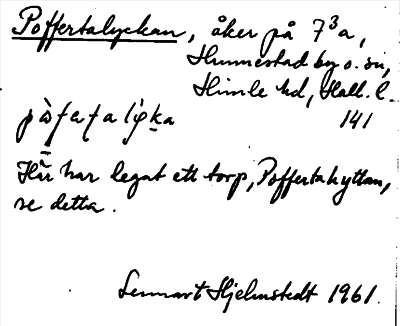 Poffertalyckan, åker på 7³a,
Hunnestad by o. sn,
Himle hd, Hall. l.
141
Här har legat ett torp, Poffertahyttan,
se detta.
Lennart Hjelmstedt 1961.